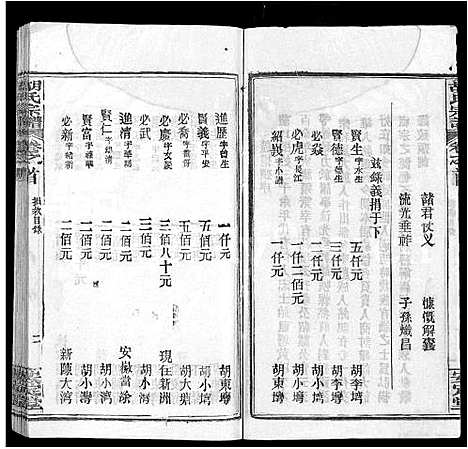 胡氏宗譜
卷之首
諸君仗义　慷慨解囊
流光垂祚　子孫熾昌
茲錄義捐于下
賢生字水生　五仟元　胡李塆
賢德字德生　二仟元　胡李塆
必焱　二仟元　胡小塆
必虎字長江　一仟二佰元　胡小塆
紹其字小斌　一仟元　胡東塆
進歷字曾生　一仟元　胡東塆
賢義字平安　五佰元　胡小塆
必喬字紫雲　五佰元　胡大塆
必慶字文波　三佰八十元　現在新洲
必武　三佰元　胡小塆
進清字華橋　二佰元　安徽當涂
賢仁字從清　二佰元　胡小灣
賢富字雅華　二佰元　胡小灣
必新字緒新　二佰元　新陳大灣
胡氏宗譜
卷之首
捐款目錄